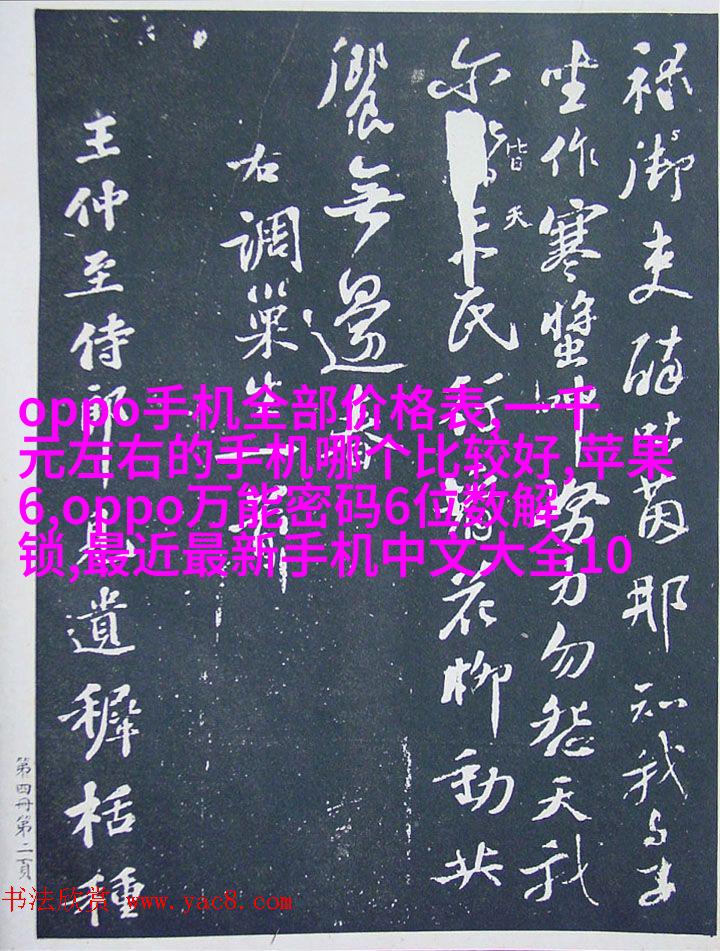 禄御吏醉吐茵那知我与子
坐作寒螿呻努力勿怨天我
尔皆天民行看花柳動共
饗無邊春
右調巢
王仲至侍郎見遺穉栝種
第四冊第二頁
oppo手机全部价格表,一千
元左右的手机哪个比较好,苹果
6,oppo万能密码6位数解
锁,最近最新手机中文大全10
书法欣赏 www.yac8.com